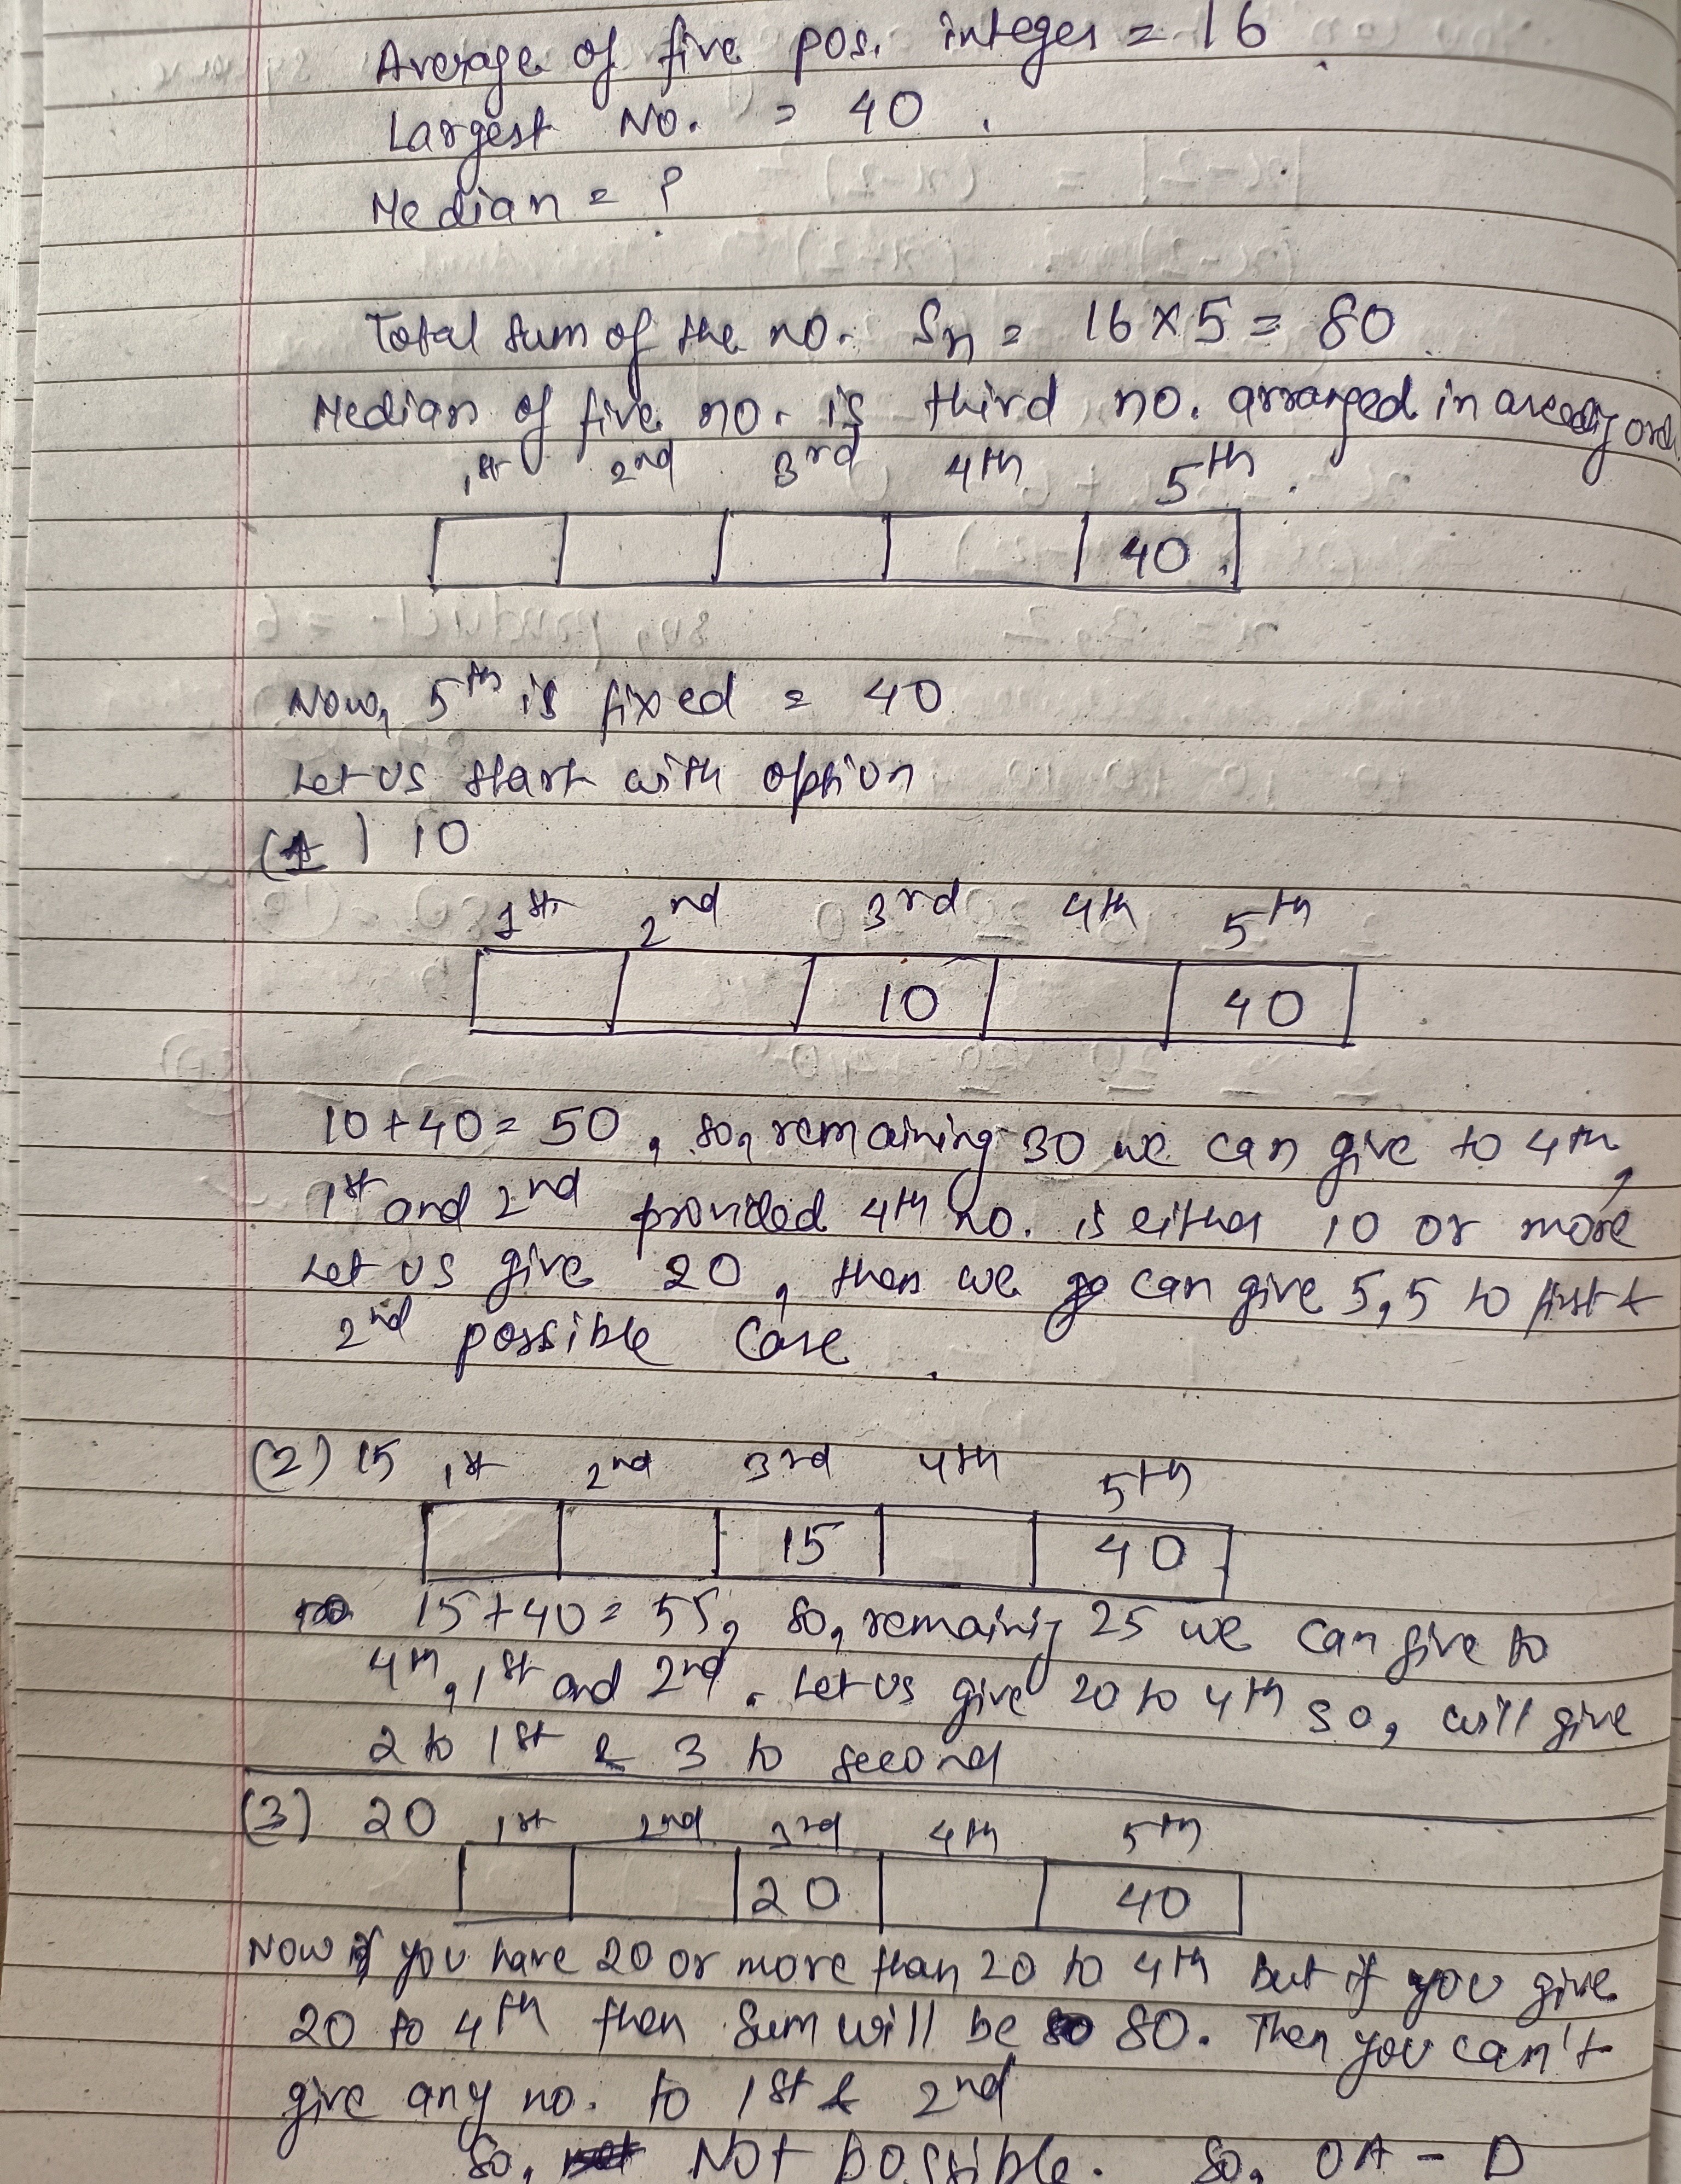 Average of five pos. integer = 16
Largest No. = 40.
Median = ?
Total sum of the no. Sn = 16 x 5 = 80.
Median of five no. is third no. arranged in
1st 2nd 3rd 4th 5th.
40
Now, 5th is fixed = 40
Let us start with option
(1) 10
1st 2nd 3rd 4th 5th
10 40
10 + 40 = 50, so, remaining 30 we can give to 4th,
1st and 2nd provided 4th no. is either 10 or more
Let us give 20, then we can give 5, 5 to first &
2nd possible case.
(2) 15 1st 2nd 3rd 4th 5th
15 40
15 + 40 = 55, so, remainig 25 we can give to
4th, 1st and 2nd. Let us give 20 to 4th so, will give
2 to 1st & 3 to second
(3) 20 1st 2nd 3rd 4th 5th
20 40
Now if you have 20 or more than 20 to 4th but if you give
20 to 4th then sum will be 80. Then you can't
give any no. to 1st & 2nd
So, Not possible. So, OA - D